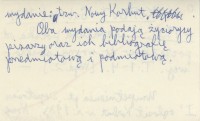 wydanie: tzw. Nowy Korbut.
Oba wydania podają życiorysy
pisarzy oraz ich bibliografię
przedmiotową i podmiotową.